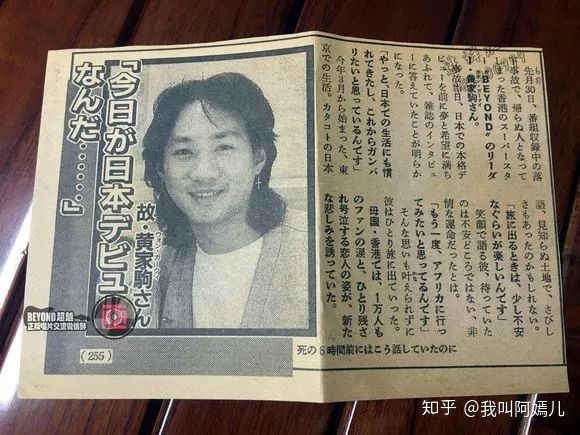 「今日が日本デビュー
なんだ……」
故・黄家駒さん
先月30日、番組収録中の落
事故で、帰らぬ人となって
まった香港のスーパースタ
"BEYOND"のリーダ
ー・黄家駒さん。
事故当日、日本での本格デ
ビューを前に夢と希望に満ち
あふれて、雑誌のインタビュ
ーに答えていたことが明らか
になった。
「やっと、日本での生活にも慣
れてきたし、これからガンバ
りたいと思っているんです」
今年3月から始まった、東
京での生活。カタコトの日本
語、見知らぬ土地で、さびし
さもあったのかもしれない。
「旅に出るときは、少し不安
なぐらいが楽しいんです」
笑顔で語る彼、待っていた
のは不安どころではない、非
情な運命だったとは。
「もう一度、アフリカに行っ
てみたいと思ってるんです」
そんな思いも叶えられずに
彼はひとり旅に出ていった。
母国・香港では、1万人も
のファンの涙と、ひとり残さ
れ号泣する恋人の姿が、新た
な悲しみを誘っていた。
死の6時間前にはこう話していたのに
(255)
BEYOND超越
正版唱片交流微信群
知乎 @我叫阿嫣儿